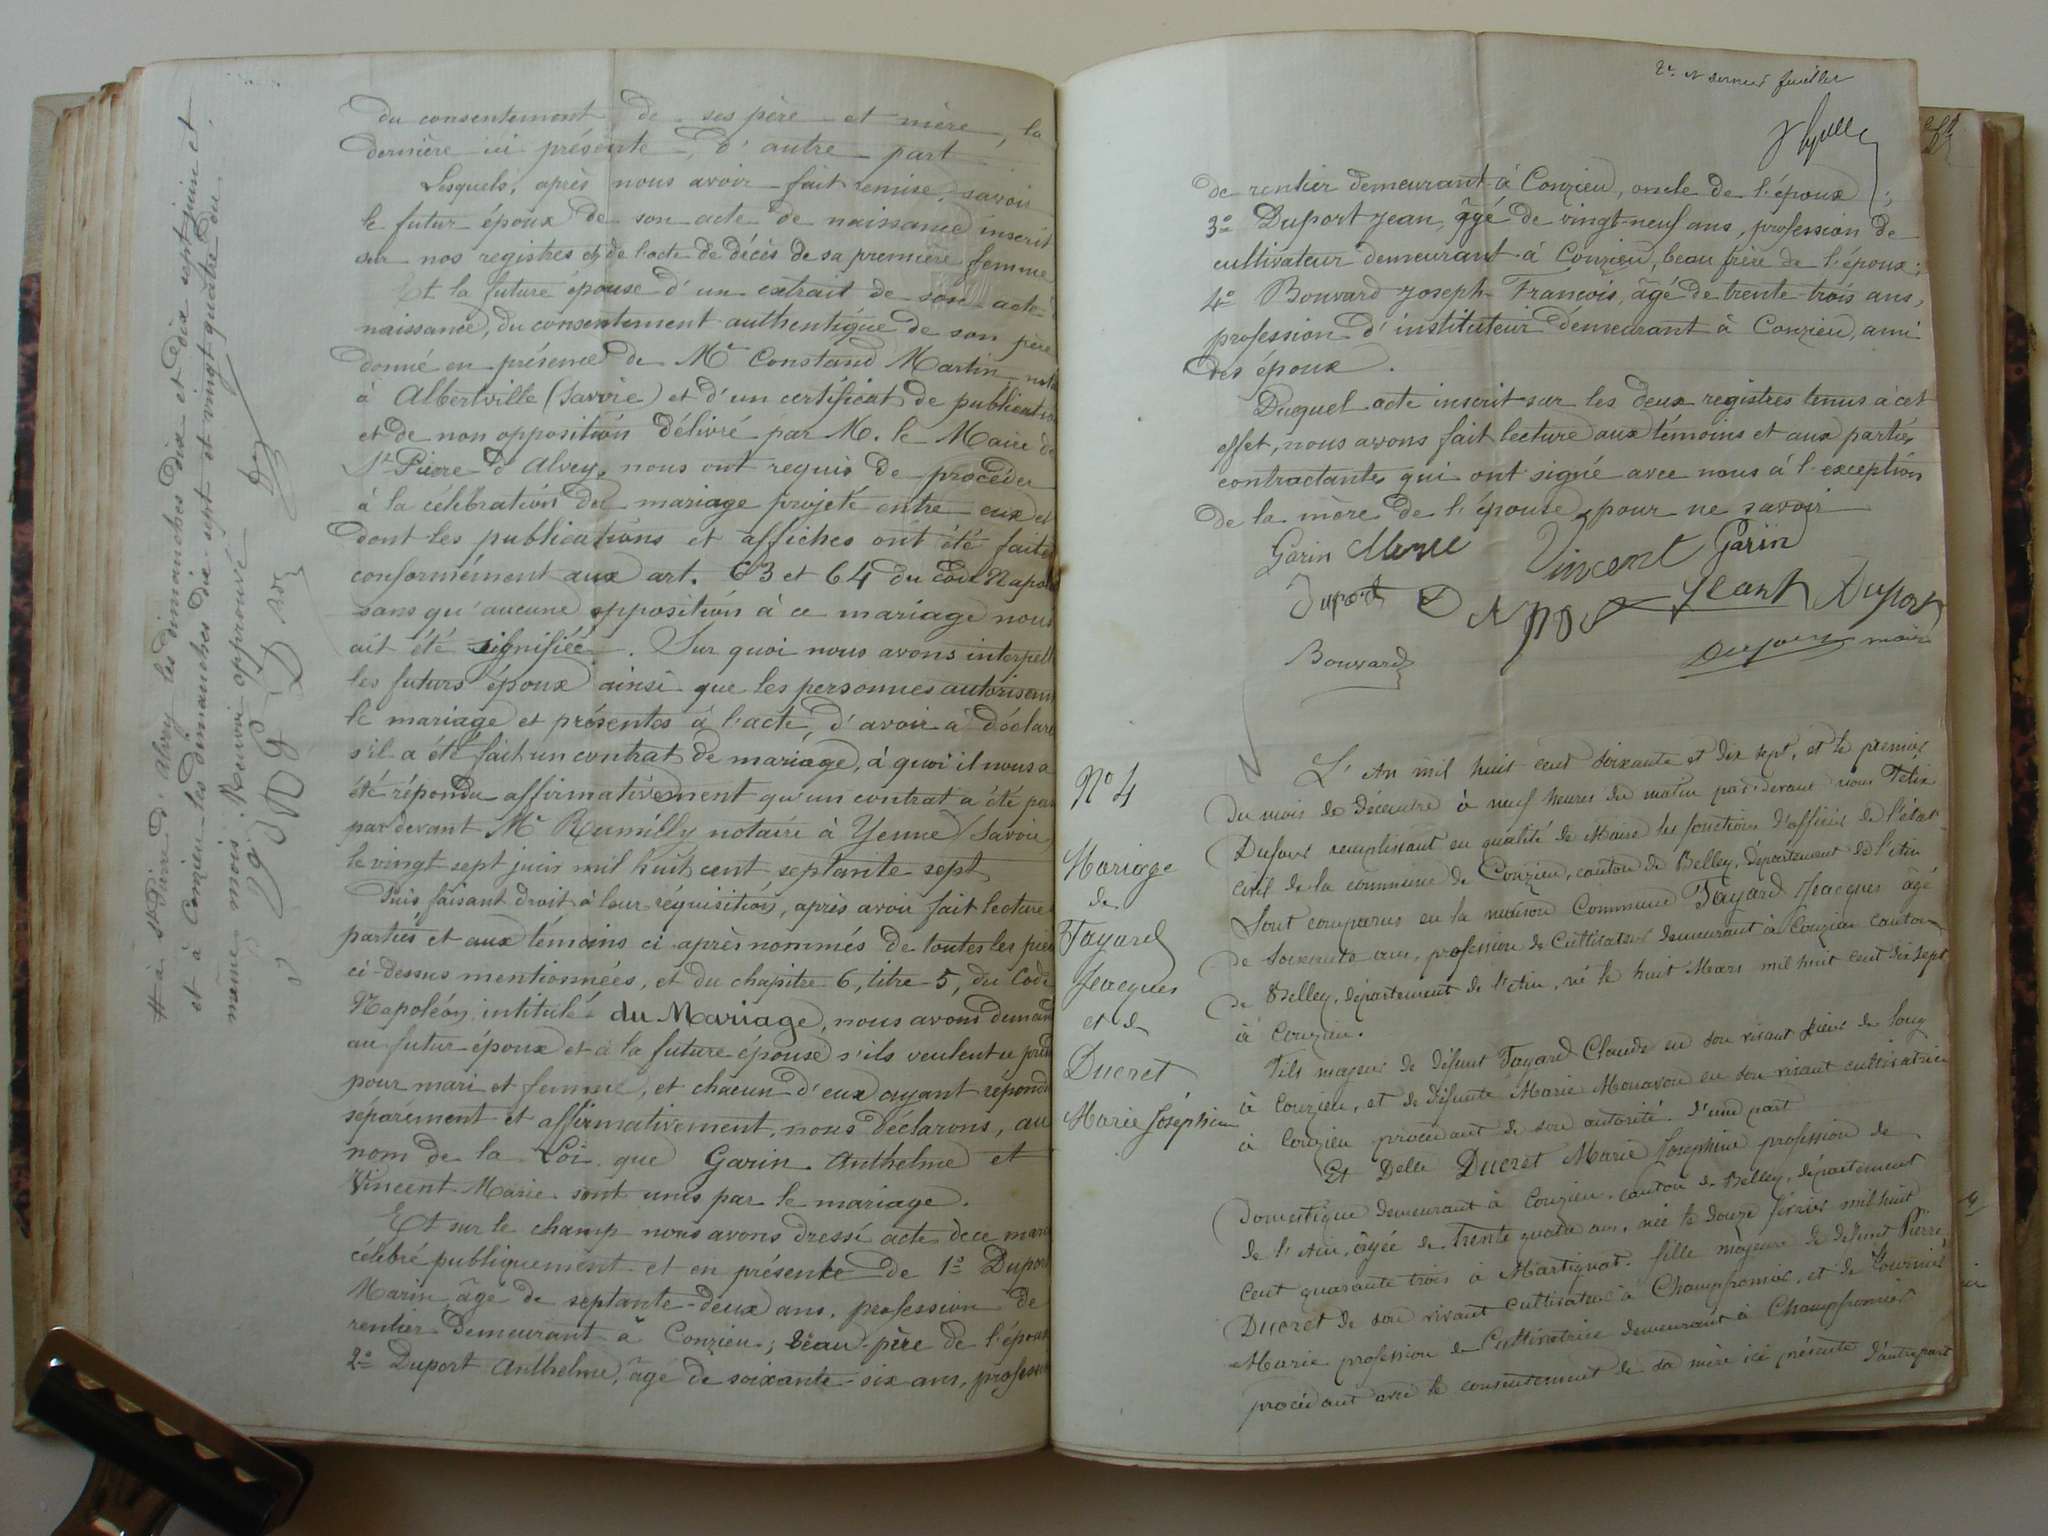 du consentement de ses père et mère, la
dernière ici présente, d'autre part
Lesquels, après nous avoir fait remise, savoir
le futur époux de son acte de naissance inscrit
sur nos registres et de l'acte de décès de sa première femme
Et la future épouse d'un extrait de son acte
naissance, du consentement authentique de son père
donné en présence de Me Constand Martin
à Albertville (Savoie) et d'un certificat de publication
et de non opposition délivré par M. le Maire de
St Pierre d'Alvey, nous ont requis de procéder
à la célébration du mariage projeté entre eux et
dont les publications et affiches ont été faites
conformément aux art. 63 et 64 du Code Napol
sans qu'aucune opposition à ce mariage nous
ait été signifiée. Sur quoi nous avons interpell
les futurs époux ainsi que les personnes autorisant
le mariage et présentes à l'acte, d'avoir à déclare
s'il a été fait un contrat de mariage, à quoi il nous a
été répondu affirmativement qu'un contrat a été
par devant Me Rumilly notaire à Yenne (Savoie
le vingt sept juin mil huit cent septante sept
Puis faisant droit à leur réquisition, après avoir fait lecture
parties et aux témoins ci après nommés de toutes les piè
ci-dessus mentionnées, et du chapitre 6, titre 5, du Code
Napoléon intitulé du Mariage, nous avons demand
au futur époux et à la future épouse s'ils veulent se prend
pour mari et femme, et chacun d'eux ayant répondu
séparément et affirmativement, nous déclarons, au
nom de la Loi que Garin Anthelme et
Vincent Marie sont unis par le mariage.
Et sur le champ nous avons dressé acte de ce mari
célébré publiquement et en présence de 1º Duport
Marin, âgé de septante-deux ans, profession de
rentier demeurant à Conzieu; beau-père de l'époux
2º Duport Anthelme, âgé de soixante-six ans, profession
# à St Pierre d'Alvey les dimanches dix et dix sept juin et
et à Conzieu les dimanches dix-sept et vingt quatre du
même mois. Renvoi approuvé
2e et dernier feuillet
de rentier demeurant à Conzieu, oncle de l'époux;
3º Duport Jean, âgé de vingt-neuf ans, profession de
cultivateur demeurant à Conzieu, beau frère de l'époux;
4º Bouvard Joseph-François, âgé de trente-trois ans,
profession d'instituteur demeurant à Conzieu, ami
des époux.
Duquel acte inscrit sur les deux registres tenus à cet
effet, nous avons fait lecture aux témoins et aux parties
contractantes qui ont signé avec nous à l'exception
de la mère de l'épouse, pour ne savoir
Garin Vincent Garin
Duport Jean Duport
Bouvard Dufour maire
Nº 4
Mariage
de
Fayard
Jacques
et de
Ducret
Marie Joséphine
L'An mil huit cent soixante et dix sept, et le premier
du mois de Décembre à neuf heures du matin par devant nous Félix
Dufour remplissant en qualité de Maire les fonctions d'officier de l'état
civil de la commune de Conzieu, canton de Belley, département de l'Ain
Sont comparus en la maison Commune Fayard Jacques âgé
de soixante ans, profession de Cultivateur demeurant à Conzieu canton
de Belley, département de l'Ain, né le huit Mars mil huit cent dix sept
à Conzieu.
Fils majeur de défunt Fayard Claude en son vivant
à Conzieu, et de défunte Marie en son vivant cultivatrice
à Conzieu procédant de son autorité. d'une part
Et Delle Ducret Marie Joséphine profession de
Domestique demeurant à Conzieu, canton de Belley, département
de l'Ain, âgée de trente quatre ans, née le douze février mil huit
cent quarante trois à Martignat, fille majeure de défunt Pierre
Ducret de son vivant Cultivateur à Champfromier, et de Tournier
Marie profession de Cultivatrice demeurant à Champfromier
procédant avec le consentement de sa mère ici présente d'autre part